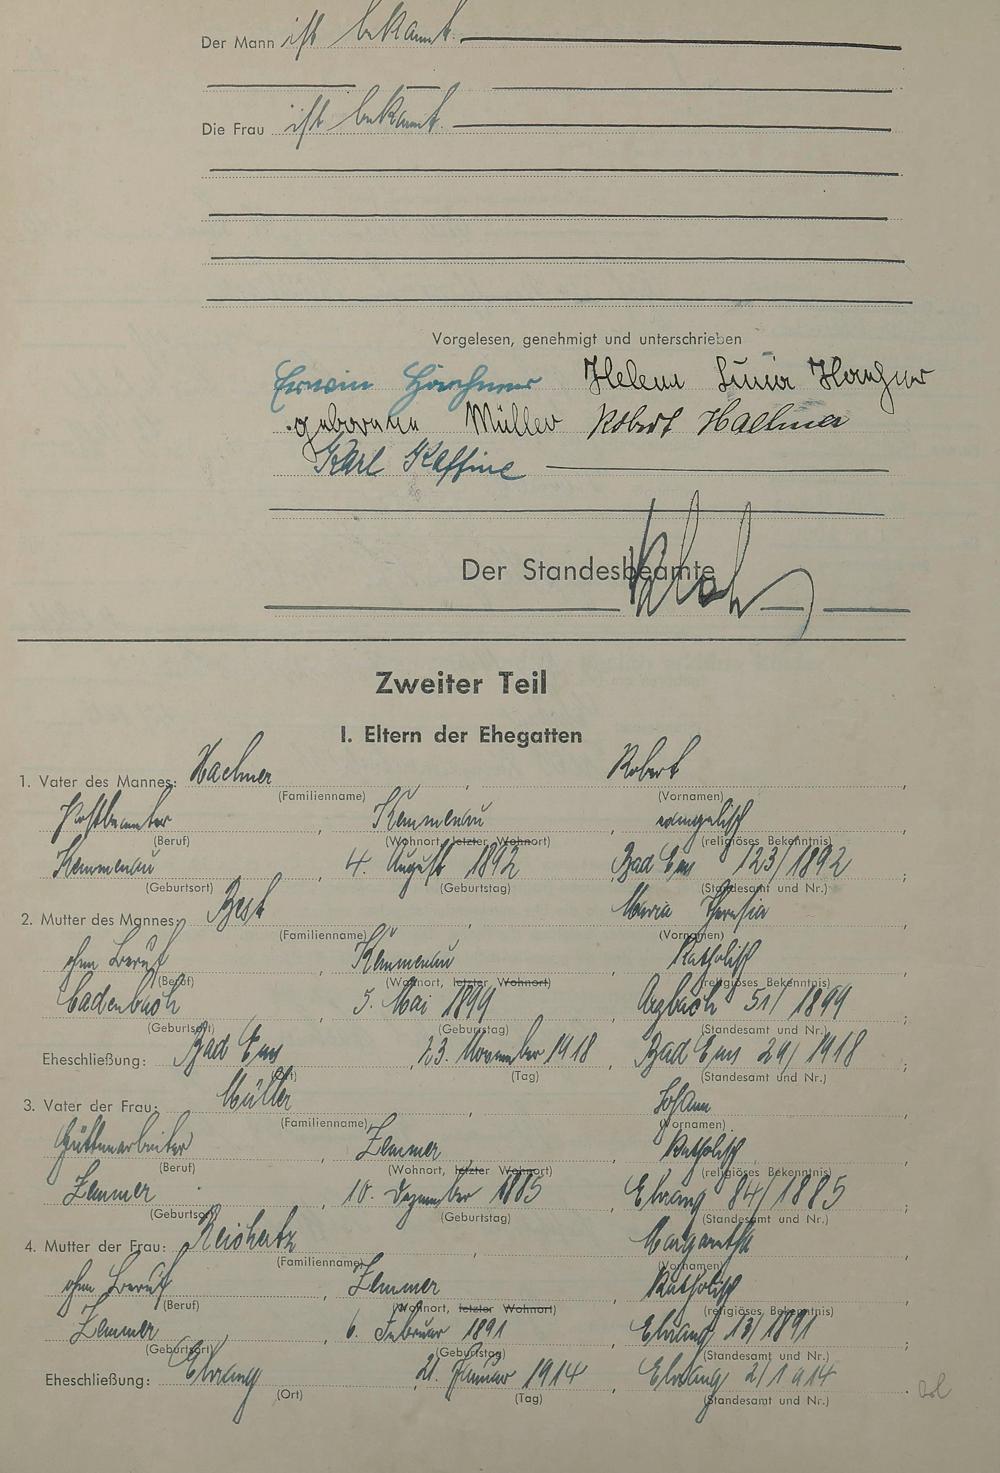 Der Mann ist bekannt.
Die Frau ist bekannt.
Vorgelesen, genehmigt und unterschrieben
Erwin Helena
geborene Müller Robert Haehner
Karl
Der Standesbeamte
Zweiter Teil
I. Eltern der Ehegatten
1. Vater des Mannes: Haehner, Robert,
(Familienname) (Vornamen)
Postbeamter, Kemmenau, evangelisch
(Beruf) (Wohnort, letzter Wohnort) (religiöses Bekenntnis)
Kemmenau, 4. August 1892, Bad Ems 123/1892;
(Geburtsort) (Geburtstag) (Standesamt und Nr.)
2. Mutter des Mannes: Best, Maria Theresia,
(Familienname) (Vornamen)
ohne Beruf, Kemmenau, katholisch
(Beruf) (Wohnort, letzter Wohnort) (religiöses Bekenntnis)
Cadenbach, 5. Mai 1899, Arzbach 51/1899
(Geburtsort) (Geburtstag) (Standesamt und Nr.)
Eheschließung: Bad Ems, 23. November 1918, Bad Ems 29/1918;
(Ort) (Tag) (Standesamt und Nr.)
3. Vater der Frau: Müller, Johann,
(Familienname) (Vornamen)
Hüttenarbeiter, Zemmer, katholisch
(Beruf) (Wohnort, letzter Wohnort) (religiöses Bekenntnis)
Zemmer, 10. Dezember 1885, Ehrang 84/1885;
(Geburtsort) (Geburtstag) (Standesamt und Nr.)
4. Mutter der Frau: Reichertz, Margaretha,
(Familienname) (Vornamen)
ohne Beruf, Zemmer, katholisch,
(Beruf) (Wohnort, letzter Wohnort) (religiöses Bekenntnis)
Zemmer, 6. Februar 1891, Ehrang 13/1891;
(Geburtsort) (Geburtstag) (Standesamt und Nr.)
Eheschließung: Ehrang, 21. Januar 1914, Ehrang 2/1914.
(Ort) (Tag) (Standesamt und Nr.)